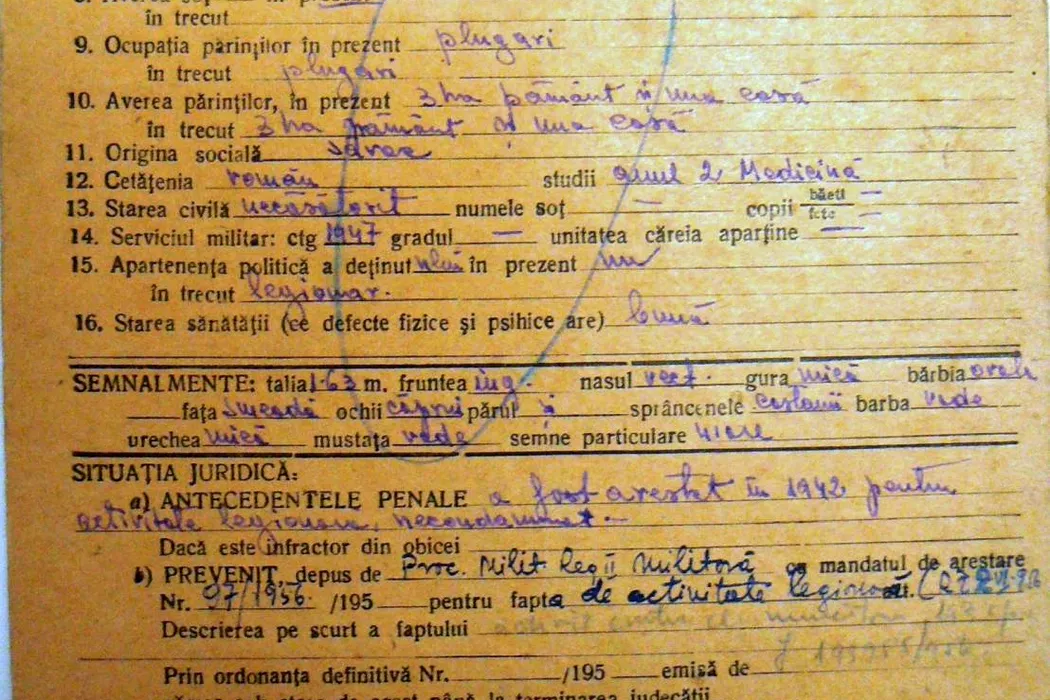 în trecut
9. Ocupația părinților în prezent plugari
în trecut plugari
10. Averea părinților, în prezent 3 ha pământ și una casă
în trecut 3 ha pământ și una casă
11. Origina socială sărac
12. Cetățenia român studii anul 2 Medicină
13. Starea civilă necăsătorit numele soț — copii băeți — fete —
14. Serviciul militar: ctg 1947 gradul — unitatea căreia aparține —
15. Apartenența politică a deținut în prezent nu
în trecut legionar.
16. Starea sănătății (ce defecte fizice și psihice are) bună
SEMNALMENTE: talia 1.63 m. fruntea îng. nasul rect. gura mică bărbia ovală
fața smeadă ochii căprui părul și sprâncenele castanii barba rade
urechea mică mustața rade semne particulare n'are
SITUAȚIA JURIDICĂ:
a) ANTECEDENTELE PENALE a fost arestat în 1942 pentru
activitate legionara, necondamnat. —
Dacă este infractor din obicei
b) PREVENIT, depus de Proc. Milit. Reg. II Militară cu mandatul de arestare
Nr. 97/1956. /195 pentru fapta de activitate legionară.
Descrierea pe scurt a faptului
Prin ordonanța definitivă Nr. /195 emisă de
până la terminarea judecății